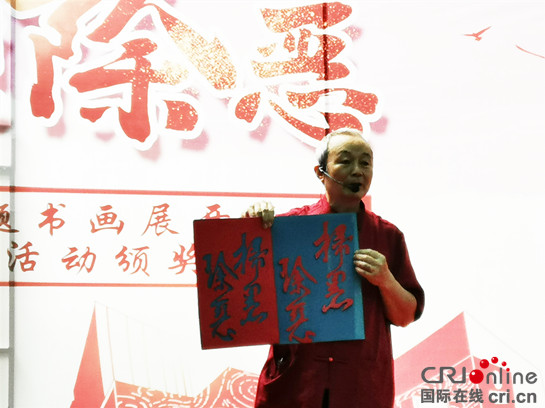 除恶
题书画展开
活动颁奖
掃黑
除恶
掃黑
除恶
CRIonline
国际在线 cri.cn